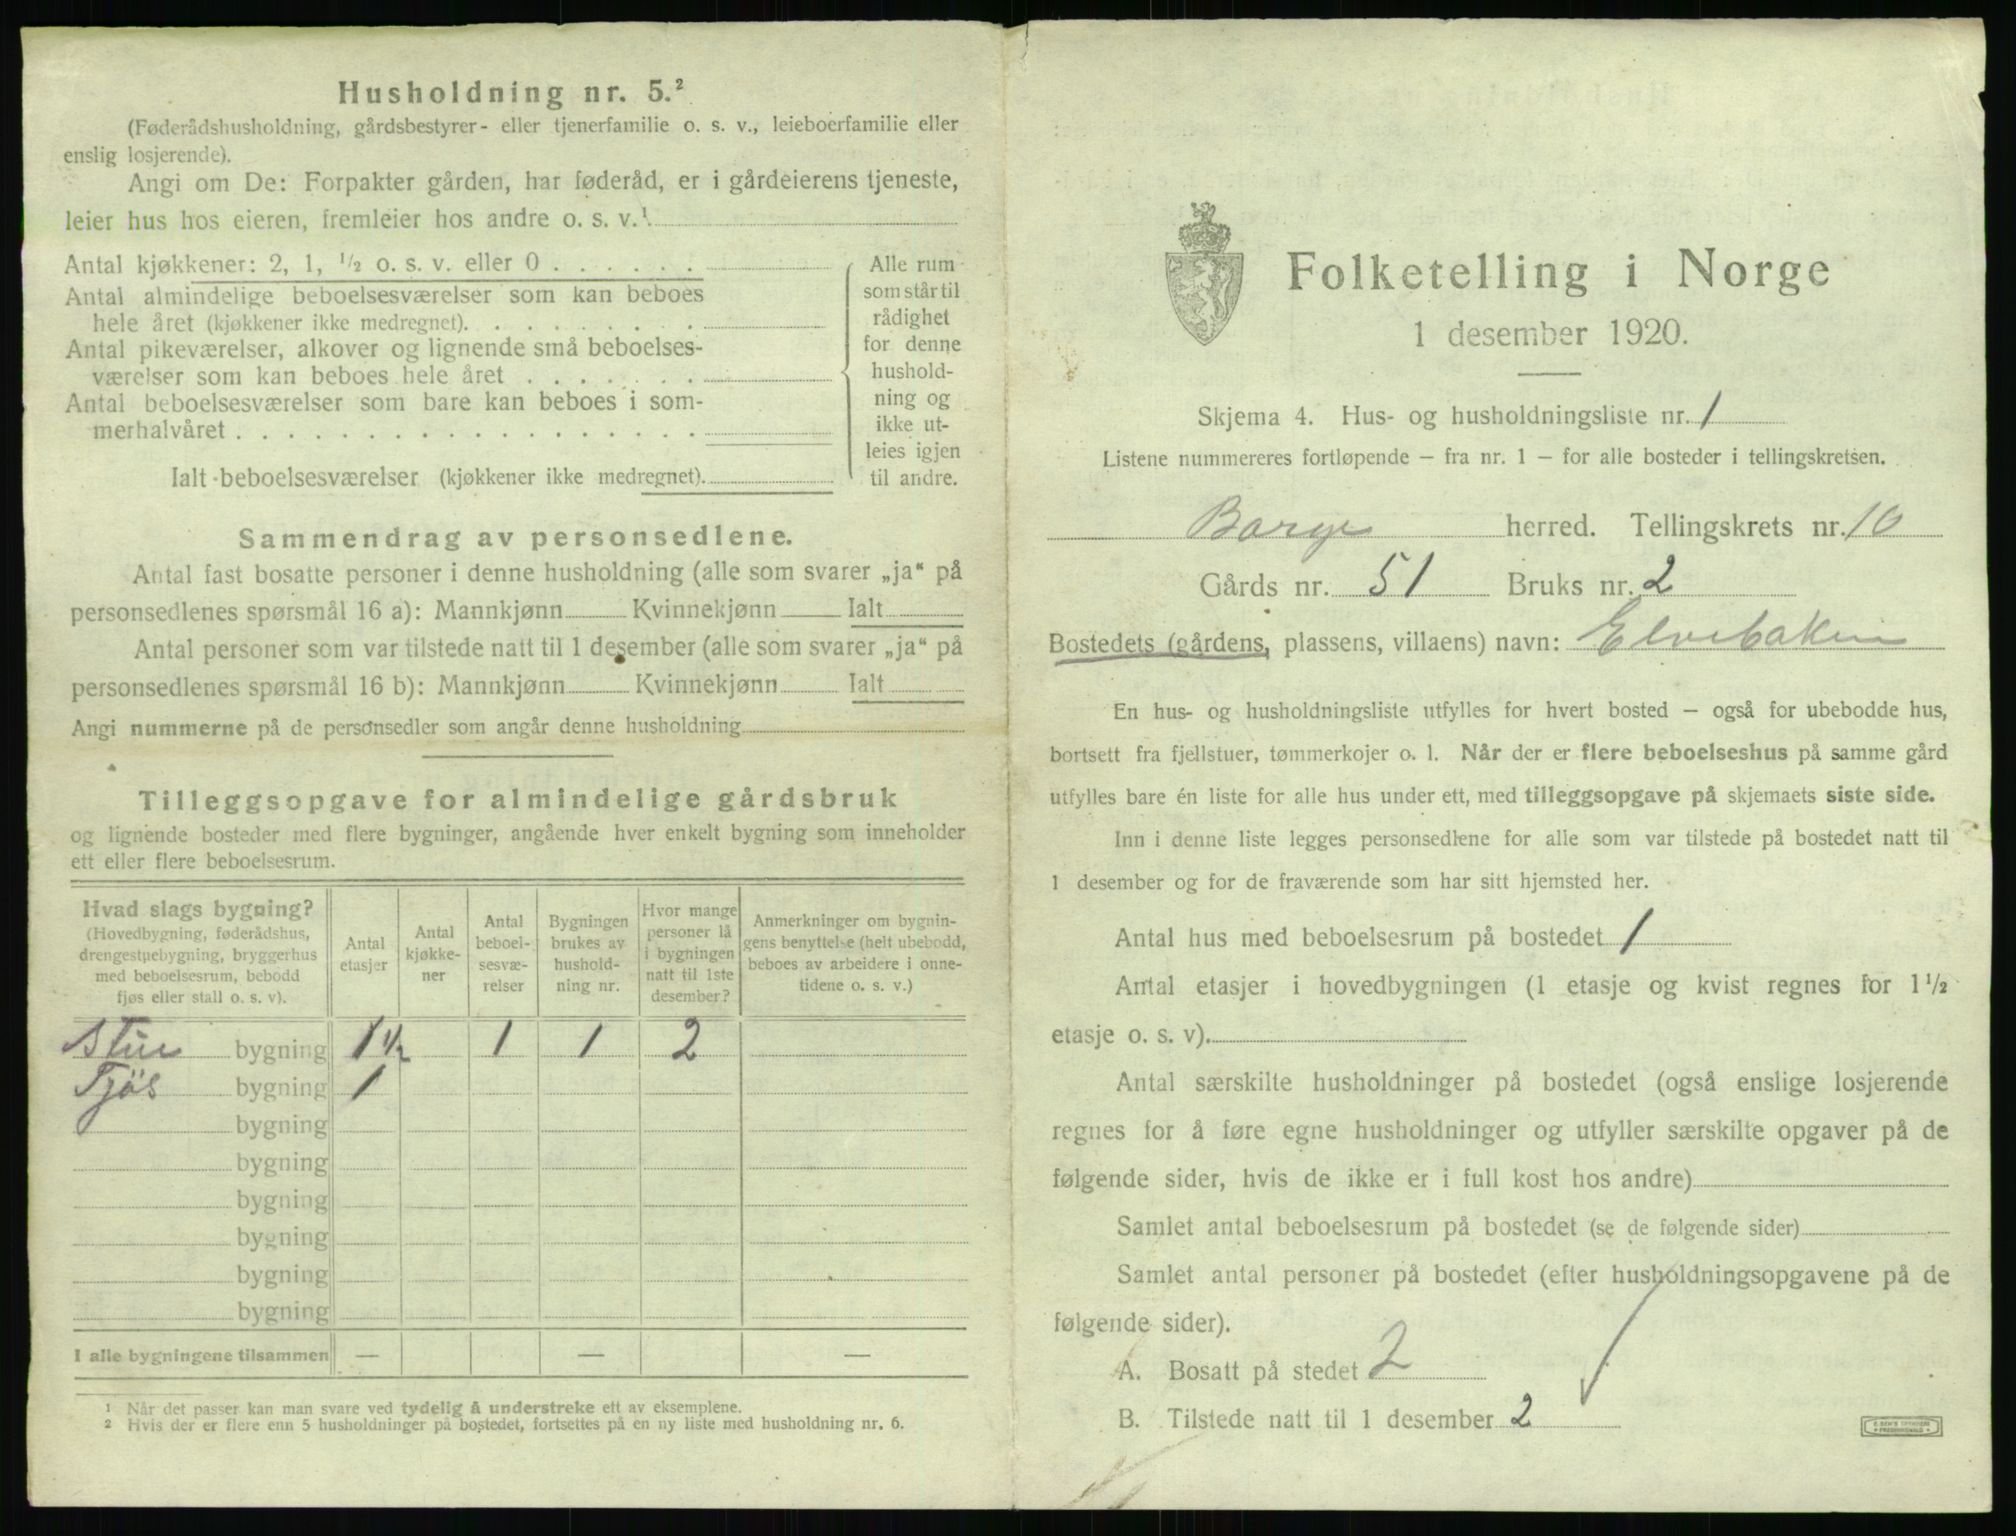 Husholdning nr. 5.²
(Føderådshusholdning, gårdsbestyrer- eller tjenerfamilie o. s. v., leieboerfamilie eller
enslig losjerende).
Angi om De: Forpakter gården, har føderåd, er i gårdeierens tjeneste,
leier hus hos eieren, fremleier hos andre o. s. v.¹
Antal kjøkkener: 2, 1, ½ o. s. v. eller 0
Antal almindelige beboelsesværelser som kan beboes
hele året (kjøkkener ikke medregnet).
Antal pikeværelser, alkover og lignende små beboelses-
værelser som kan beboes hele året
Antal beboelsesværelser som bare kan beboes i som-
merhalvåret
Ialt beboelsesværelser (kjøkkener ikke medregnet).
Alle rum
som står til
rådighet
for denne
hushold-
ning og
ikke ut-
leies igjen
til andre.
Sammendrag av personsedlene.
Antal fast bosatte personer i denne husholdning (alle som svarer „ja“ på
personsedlenes spørsmål 16 a): Mannkjønn Kvinnekjønn Ialt
Antal personer som var tilstede natt til 1 desember (alle som svarer „ja“ på
personsedlenes spørsmål 16 b): Mannkjønn Kvinnekjønn Ialt
Angi nummerne på de personsedler som angår denne husholdning
Tilleggsopgave for almindelige gårdsbruk
og lignende bosteder med flere bygninger, angående hver enkelt bygning som inneholder
ett eller flere beboelsesrum.
Hvad slags bygning?
(Hovedbygning, føderådshus,
drengestuebygning, bryggerhus
med beboelsesrum, bebodd
fjøs eller stall o. s. v).
Antal
etasjer
Antal
kjøkke-
ner
Antal
beboel-
sesvæ-
relser
Bygningen
brukes av
hushold-
ning nr.
Hvor mange
personer lå
i bygningen
natt til 1ste
desember?
Anmerkninger om bygnin-
gens benyttelse (helt ubebodd,
beboes av arbeidere i onne-
tidene o. s. v.)
Stue bygning 1½ 1 1 2
Fjös bygning 1
bygning
bygning
bygning
bygning
bygning
bygning
I alle bygningene tilsammen — — —
¹ Når det passer kan man svare ved tydelig å understreke ett av eksemplene.
² Hvis der er flere enn 5 husholdninger på bostedet, fortsettes på en ny liste med husholdning nr. 6.
Folketelling i Norge
1 desember 1920.
Skjema 4. Hus- og husholdningsliste nr. 1
Listene nummereres fortløpende – fra nr. 1 – for alle bosteder i tellingskretsen.
Borge herred. Tellingskrets nr. 10
Gårds nr. 51 Bruks nr. 2
Bostedets (gårdens, plassens, villaens) navn: Elvebakken
En hus- og husholdningsliste utfylles for hvert bosted – også for ubebodde hus,
bortsett fra fjellstuer, tømmerkojer o. l. Når der er flere beboelseshus på samme gård
utfylles bare én liste for alle hus under ett, med tilleggsopgave på skjemaets siste side.
Inn i denne liste legges personsedlene for alle som var tilstede på bostedet natt til
1 desember og for de fraværende som har sitt hjemsted her.
Antal hus med beboelsesrum på bostedet 1
Antal etasjer i hovedbygningen (1 etasje og kvist regnes for 1½
etasje o. s. v).
Antal særskilte husholdninger på bostedet (også enslige losjerende
regnes for å føre egne husholdninger og utfyller særskilte opgaver på de
følgende sider, hvis de ikke er i full kost hos andre)
Samlet antal beboelsesrum på bostedet (se de følgende sider)
Samlet antal personer på bostedet (efter husholdningsopgavene på de
følgende sider).
A. Bosatt på stedet 2
B. Tilstede natt til 1 desember 2